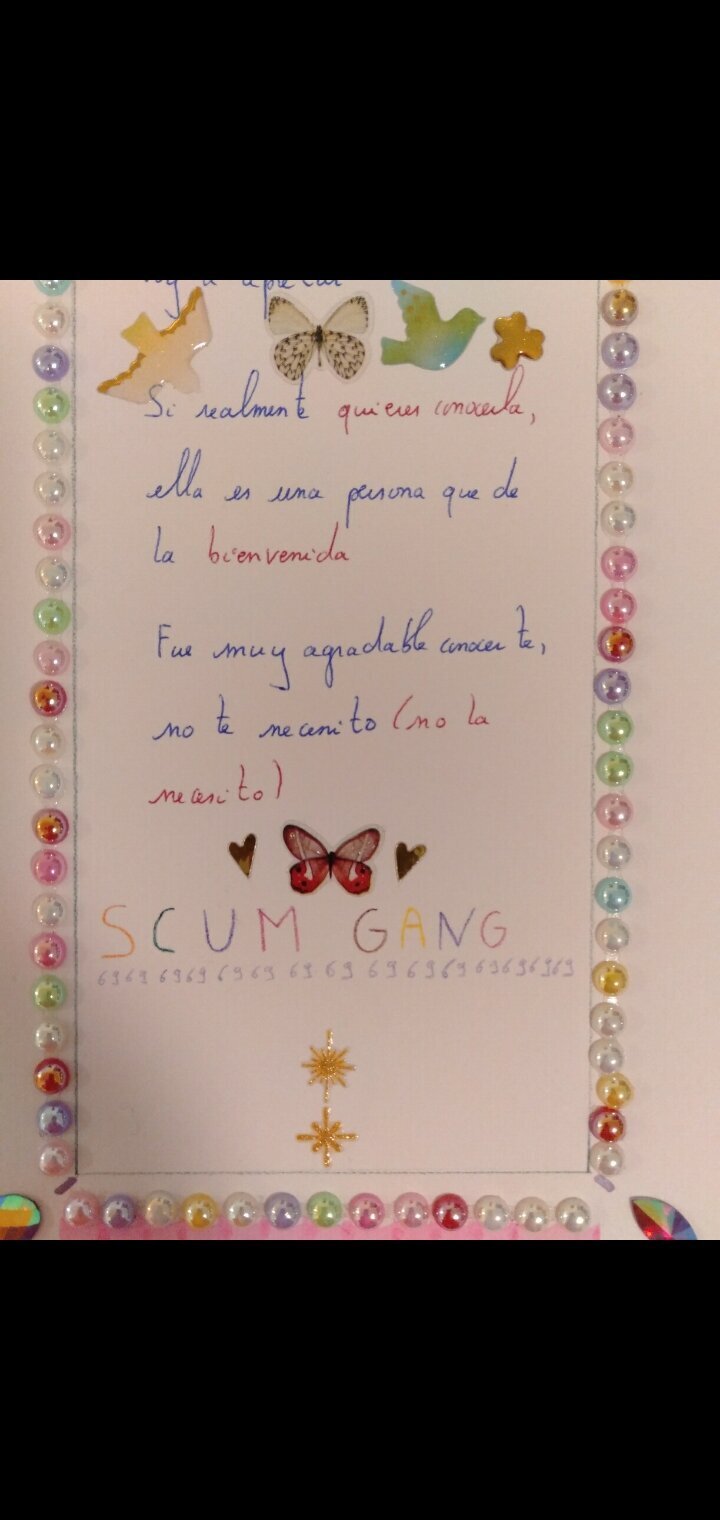 Si realmente quieres conocerla,
ella es una persona que de
la bienvenida
Fue muy agradable conocerte,
no te necesito (no la
necesito)
SCUM GANG
6969 6969 69 69 69 69 69 696969 69696969